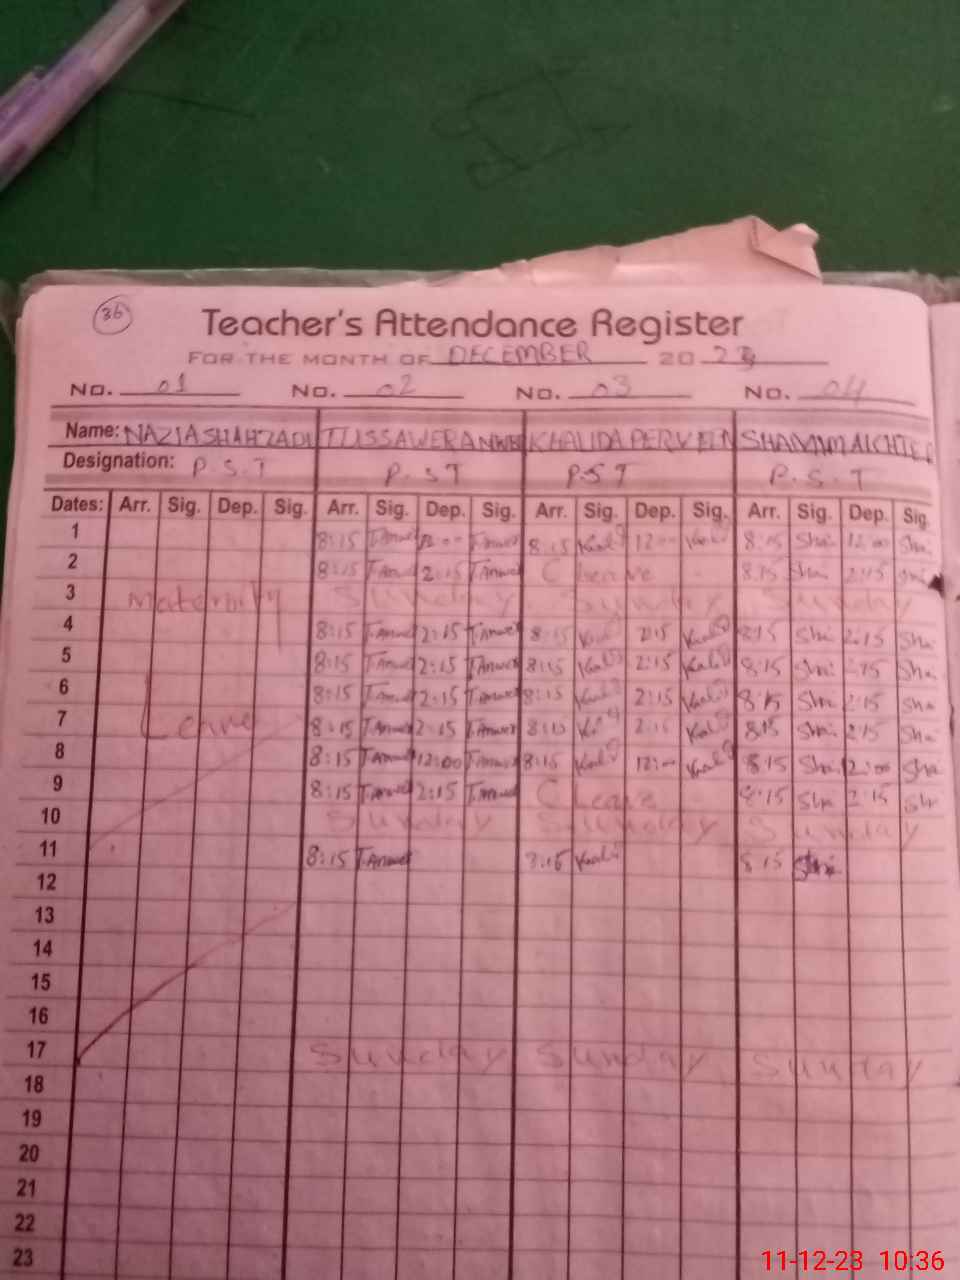 36
Teacher's Attendance Register
FOR THE MONTH OF DECEMBER 2023
No. 01 No. 02 No. 03 No. 04
Name: NAZIA SHAHZADI TUSSAWER ANWER KHALIDA PERVEEN SHAMIM AKHTER
Designation: P.S.T P.ST P.ST P.S.T
Dates: Arr. Sig. Dep. Sig. Arr. Sig. Dep. Sig. Arr. Sig. Dep. Sig. Arr. Sig. Dep. Sig.
1 8:15 T.Anwer 12:00 T.Anwer 8:15 12:00 8:15 Sha 12:00 Sha
2 8:15 T.Anwer 2:15 T.Anwer C Leave 8:15 Sha 2:15 Sha
3 Maternity Sunday Sunday Sunday
4 8:15 T.Anwer 2:15 T.Anwer 8:15 2:15 8:15 Sha 2:15 Sha
5 8:15 T.Anwer 2:15 T.Anwer 8:15 2:15 8:15 Sha 2:15 Sha
6 8:15 T.Anwer 2:15 T.Anwer 8:15 2:15 8:15 Sha 2:15 Sha
7 Leave 8:15 T.Anwer 2:15 T.Anwer 8:15 2:15 8:15 Sha 2:15 Sha
8 8:15 T.Anwer 12:00 T.Anwer 8:15 12:00 8:15 Sha 12:00 Sha
9 8:15 T.Anwer 2:15 T.Anwer C Leave 8:15 Sha 2:15 Sha
10 Sunday Sunday Sunday
11 8:15 T.Anwer 8:15 8:15
12
13
14
15
16
17 Sunday Sunday Sunday
18
19
20
21
22
23
11-12-23 10:36